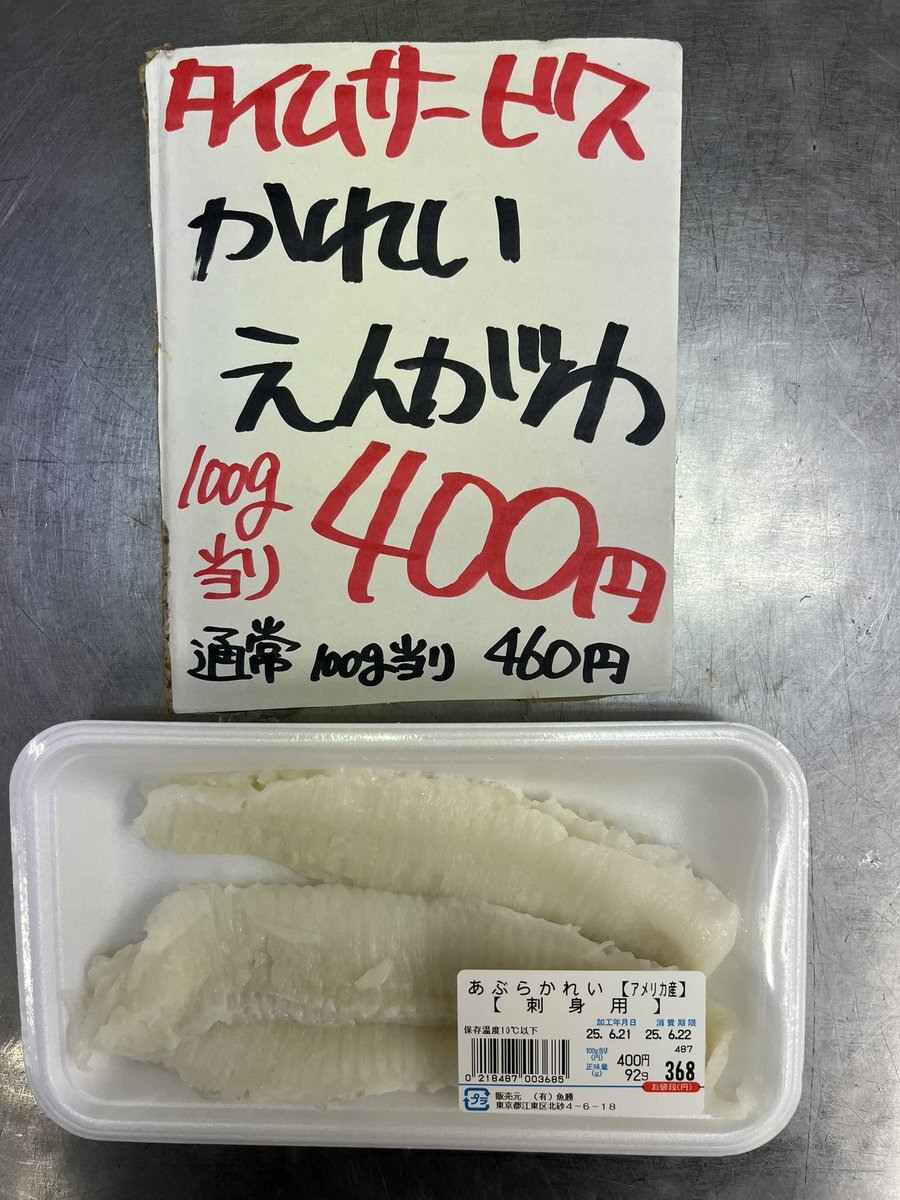 タイムサービス
かれい
えんがわ
100g当り 400円
通常 100g当り 460円
あぶらかれい【アメリカ産】
【刺身用】
保存温度10℃以下
加工年月日 消費期限
25. 6.21 25. 6.22
487
100g当り(円) 400円
正味量(g) 92g 368
お値段(円)
0 218487 003685
プラ
販売元 (有)魚勝
東京都江東区北砂4-6-18